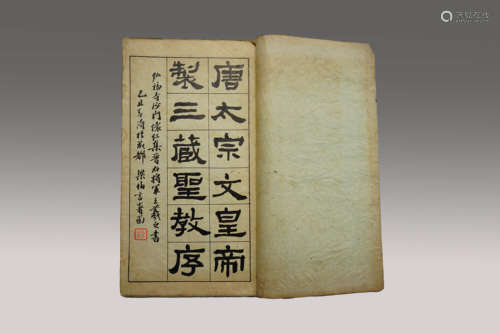 唐太宗文皇帝
製三藏聖教序
弘福寺沙門懷仁集晉右將軍王羲之書
乙丑 成都 梁伯言